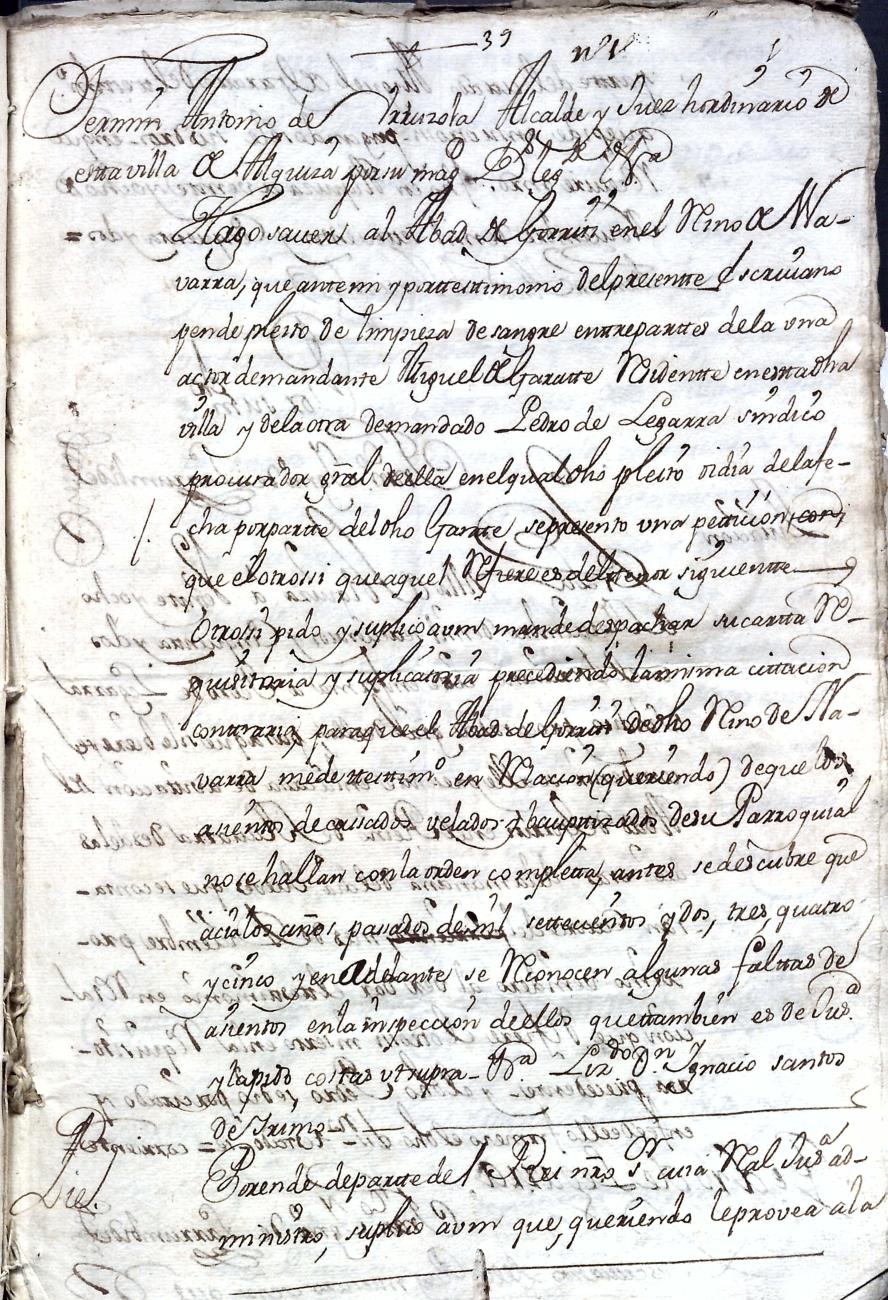 39 nº 1º
Fermin Antonio de Yrrizola Alcalde y Juez hordinario de
esta villa de Alquiza por su magd. Dios le gde. &a
Hago saver al Abad de Gorriti en el Rino de Na-
varra, que ante mi y por testtimonio del presentte Escriuano
pende pleito de limpieza de sangre entre parttes de la vna
actor demandante Miguel de Garatte Residentte en estta dha
villa y de la otra demandado Pedro de Legarra sindico
procurador gral de ella en el qual dho pleito oi dia de la fe-
cha por partte del dho Garatte se presento vna peticion con
que el otrossi que aquel Refiere es del tenor siguientte
Otrossi pido y suplico a vm mande despachar su cartta Re-
quisitoria y suplicatoria precediendo la misma cittacion
contraria, para que el Abad de Gorriti de dho Rino de Na-
varra me de testtimo. en Relacion (queriendo) de que los
asientos de cassados velados y bauptizados de su Parroquial
no se hallan con la orden completta, antes se descubre que
acia los años passados de mil settecientos y dos, tres, quatro
y cinco y en adelante se Reconocen algunas falttas de
asientos en la inspeccion de ellos que ttambien es de Jusa.
y la pido costas vt supra Lizdo. Dn. Ygnacio santos
de Yrimo
Por ende de partte del Rei nro Sr. cuia Real Jusa. ad-
ministro, suplico a vm que, queriendo le provea a la